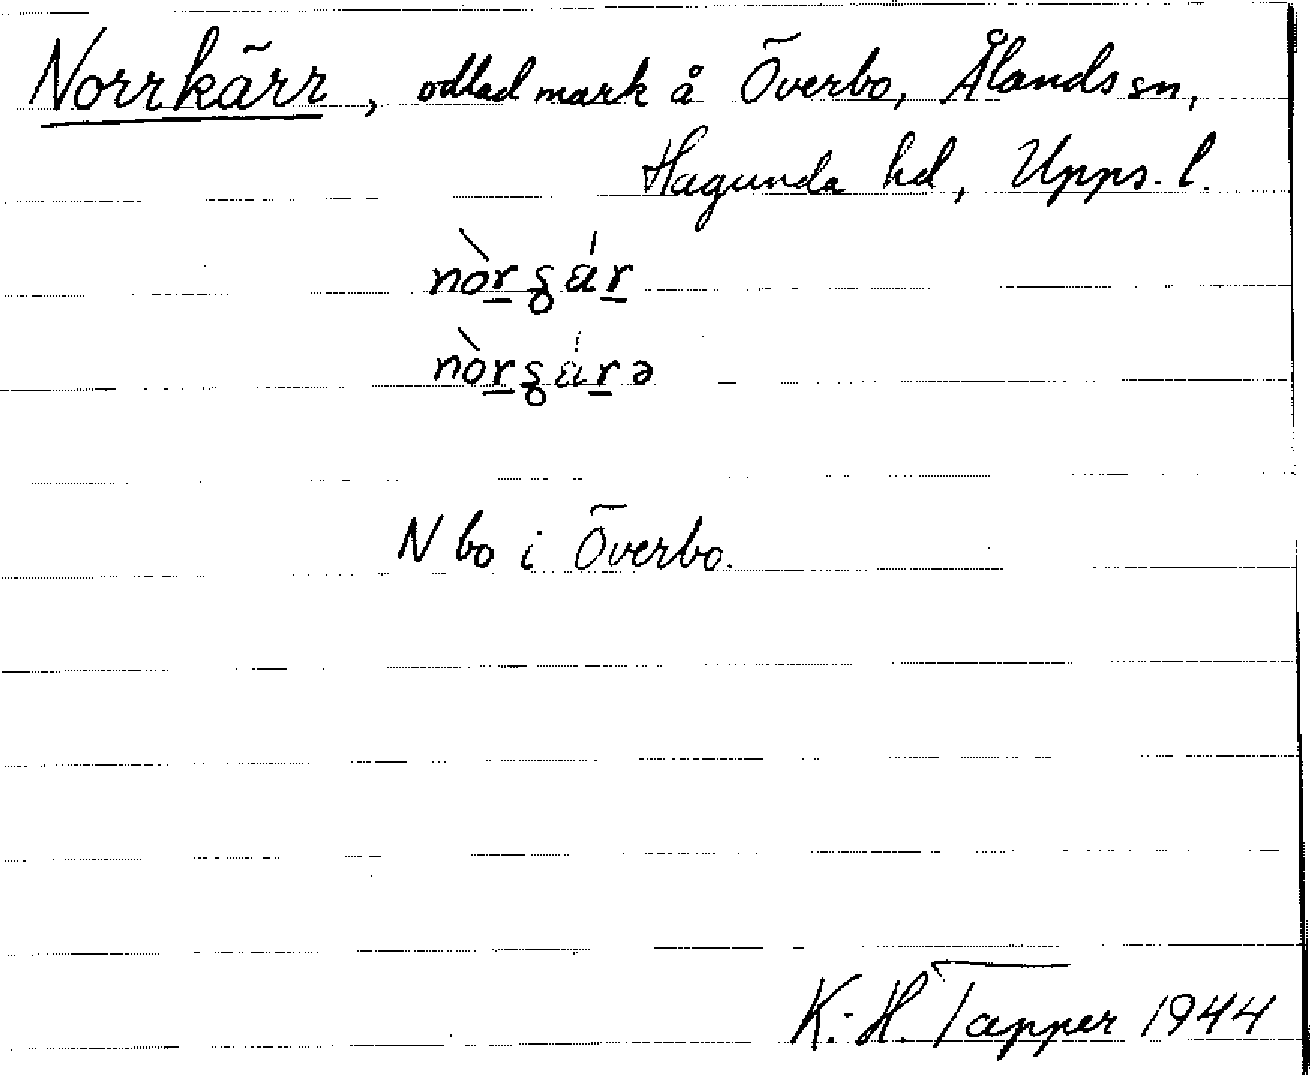 Norrkärr, odlad mark å Överbo, Ålands sn,
Hagunda hd, Upps. l.
N bo i Överbo.
K.-H. Tapper 1944